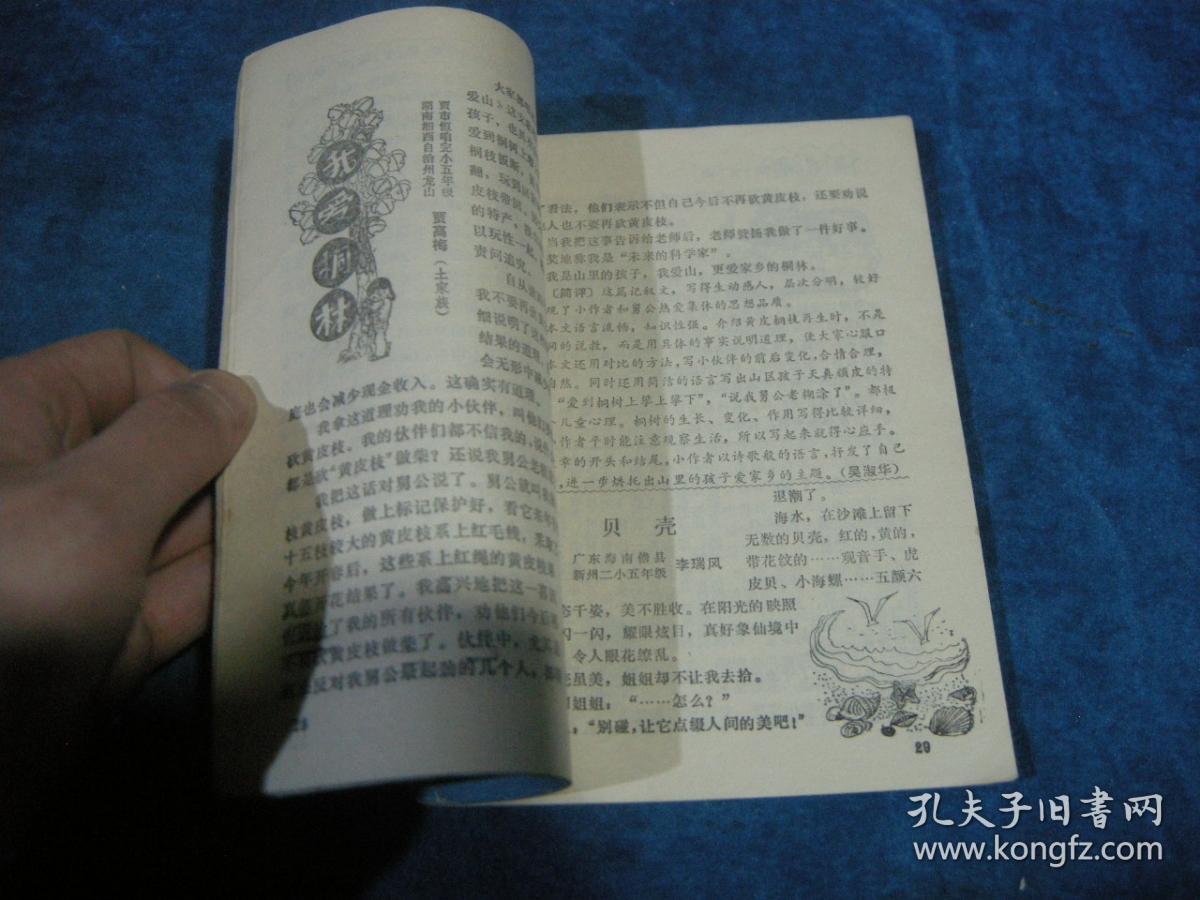 我爱桐林
湖南湘西自治州龙山
贾市恒咱完小五年级
贾高梅(土家族)
大家都
爱山》这
孩子,也
爱到桐树上
桐枝扳断,
翻,玩到
皮枝带
的特产,
以玩性一
责问追究。
自从
我不要再
细说明了
结果的道理,
会无形中减
庭也会减少现金收入。这确实有道理。
我拿这道理劝我的小伙伴,叫他们
砍黄皮枝。我的伙伴们都不信我的,说
都是砍“黄皮枝”做柴?还说我舅公老糊
我把这话对舅公说了。舅公就叫我
枝黄皮枝,做上标记保护好,看它来年
十五枝较大的黄皮枝系上红毛线,果
今年开春后,这些系上红绳的黄皮枝果
真是开花结果了。我高兴地把这一喜讯
了我的所有伙伴,劝他们今后
砍黄皮枝做柴了。伙伴中,尤其是
反对我舅公最起劲的几个人,都
了看法,他们表示不但自己今后不再砍黄皮枝,还要劝说
人也不要再砍黄皮枝。
当我把这事告诉给老师后,老师赞扬我做了一件好事。
奖地称我是“未来的科学家”。
我是山里的孩子,我爱山,更爱家乡的桐林。
〔简评〕这篇记叙文,写得生动感人,层次分明,较好
现了小作者和舅公热爱集体的思想品质。
本文语言流畅,知识性强。介绍黄皮桐枝再生时,不是
间的说教,而是用具体的事实说明道理,使大家心服口
本文还用对比的方法,写小伙伴的前后变化,合情合理,
自然。同时还用简洁的语言写出山区孩子天真顽皮的特
“爱到桐树上攀上攀下”,“说我舅公老糊涂了”。都极
儿童心理。桐树的生长、变化、作用写得比较详细,
作者平时能注意观察生活,所以写起来就得心应手。
章的开头和结尾,小作者以诗歌般的语言,抒发了自己
,进一步烘托出山里的孩子爱家乡的主题。(吴淑华)
贝壳
广东海南儋县
新州二小五年级
李瑞风
退潮了。
海水,在沙滩上留下
无数的贝壳,红的,黄的,
带花纹的……观音手、虎
皮贝、小海螺……五颜六
态千姿,美不胜收。在阳光的映照
闪一闪,耀眼炫目,真好象仙境中
令人眼花缭乱。
虽美,姐姐却不让我去拾。
姐姐:“……怎么?”
,“别碰,让它点缀人间的美吧!”
29
孔夫子旧书网
www.kongfz.com